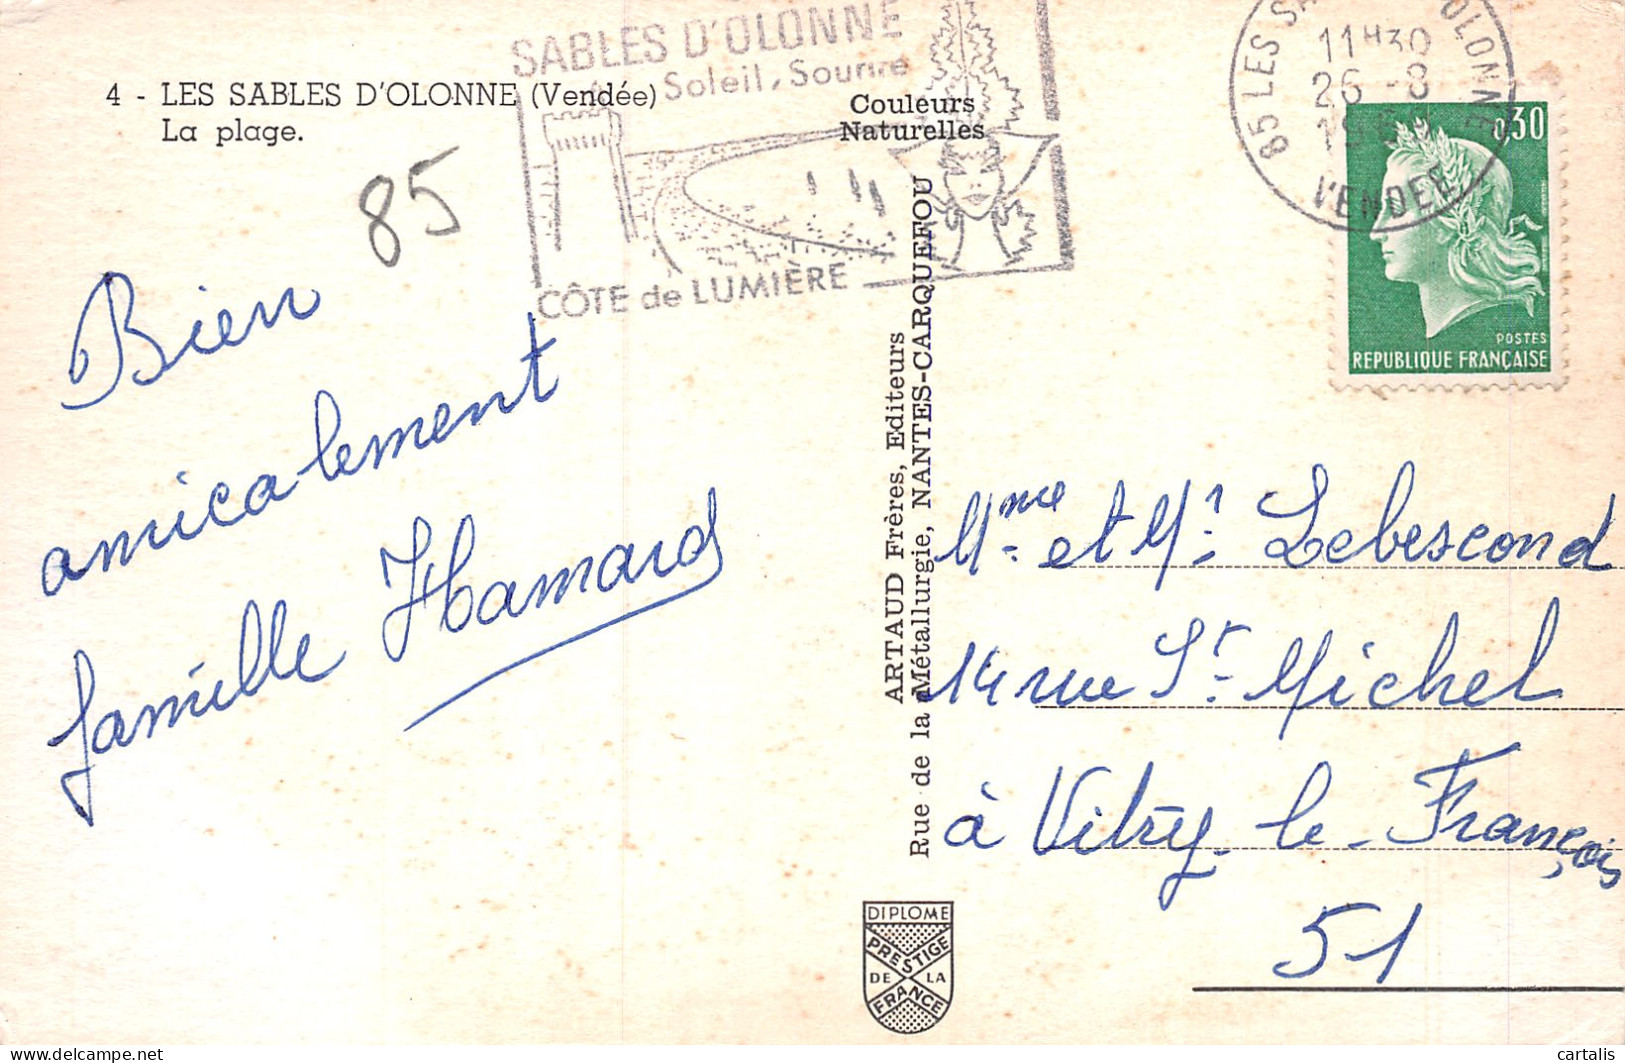 4 - LES SABLES D'OLONNE (Vendée)
La plage.
85
SABLES D'OLONNE
Soleil, Sourire
CÔTE de LUMIÈRE
Couleurs
Naturelles
85 LES SA OLONNE
11H30
26 -8
VENDEE
0,30
POSTES
REPUBLIQUE FRANÇAISE
Bien
amicalement
famille Hamard
ARTAUD Frères, Editeurs
Rue de la Métallurgie, NANTES-CARQUEFOU
Mme et Mr Lebescond
14 rue St Michel
à Vitry-le-François
51
DIPLOME
PRESTIGE
DE LA
FRANCE
cartalis